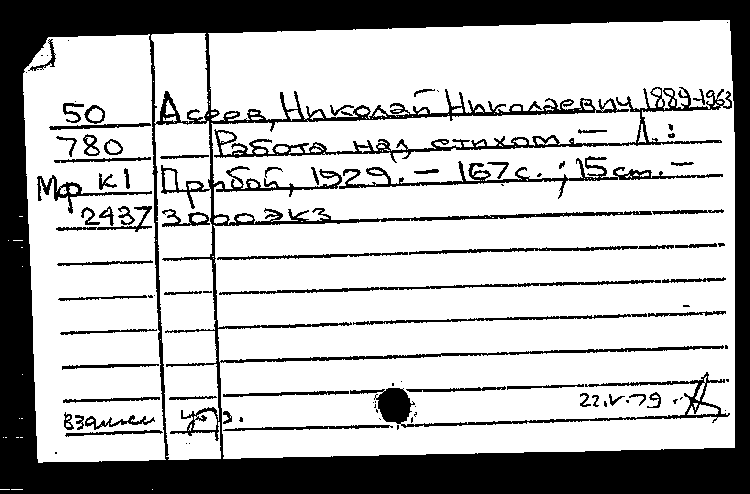 50 Асеев, Николай Николаевич 1889-1963
780 Работа над стихом. — Л.:
Мф К1 Прибой, 1929. — 167с.; 15см. —
2437 3000экз
взамен
22.V.79.